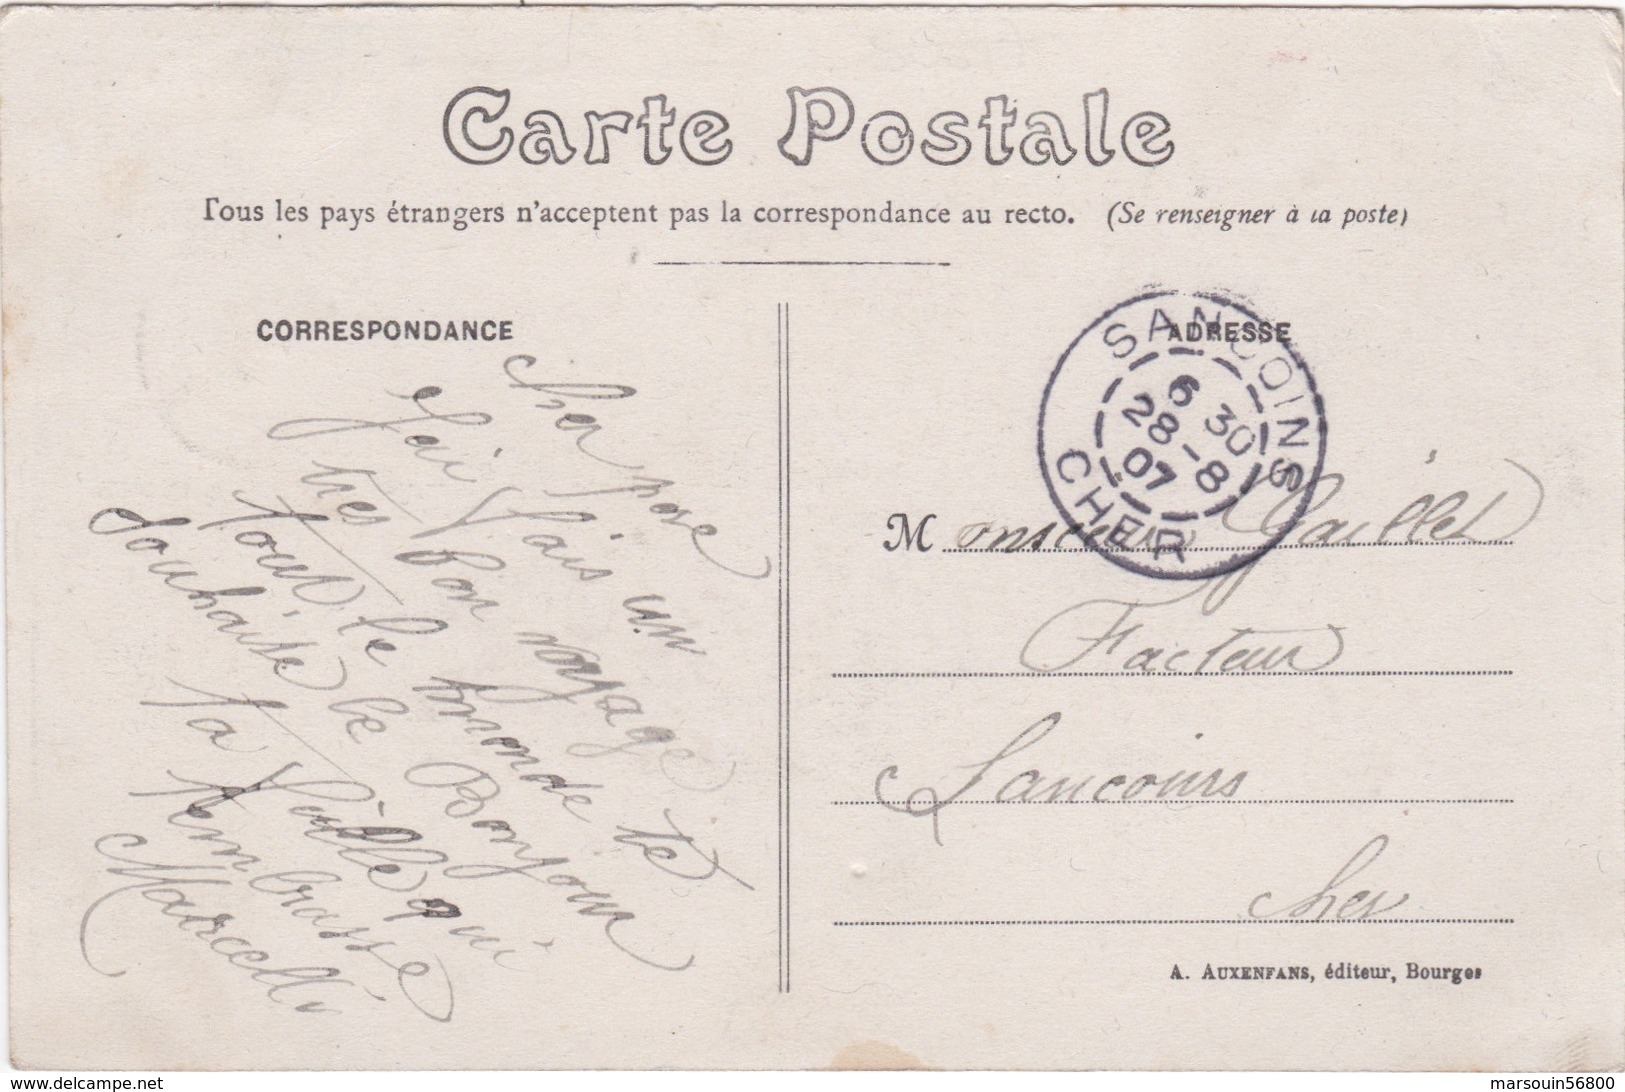 Carte Postale
Tous les pays étrangers n'acceptent pas la correspondance au recto. (Se renseigner à la poste)
CORRESPONDANCE
cher pere
J'ai fais un
tres bon voyage
tout le monde te
Souhaite le Bonjour
ta fille qui
t'embrasse
Marcelle
ADRESSE
SANCOINS
6 30
28-8
07
CHER
Monsieur Gaillet
Facteur
Sancoins
cher
A. AUXENFANS, éditeur, Bourges
delcampe.net
marsouin56800